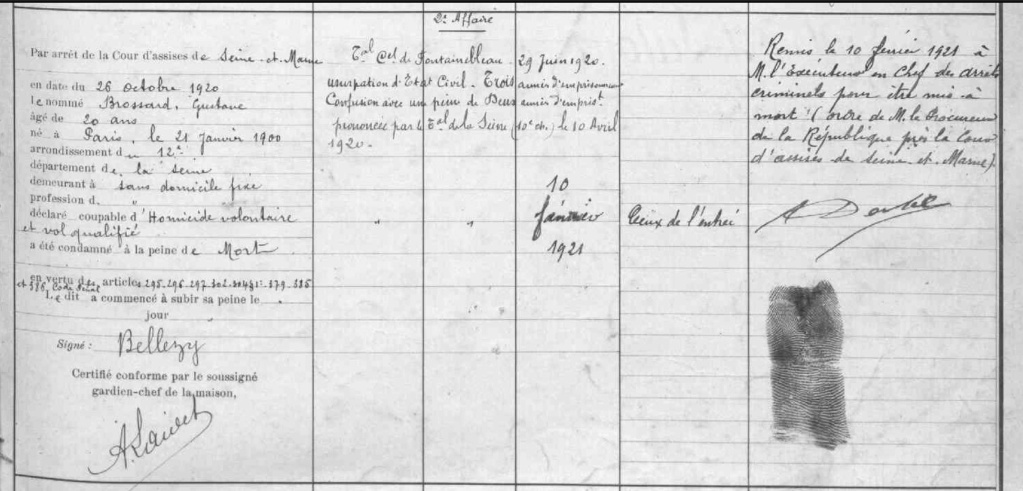 2e Affaire
Par arrêt de la Cour d'assises de Seine-et-Marne
en date du 26 octobre 1920
Le nommé Brossard, Gustave
âgé de 20 ans
né à Paris, le 21 Janvier 1900
arrondissement du 12e
département de la Seine
demeurant à sans domicile fixe
profession d "
déclaré coupable d'Homicide volontaire
et vol qualifié
a été condamné à la peine de Mort
en vertu des articles 295.296.297.302.304 379.386
et Code Pénal
Le dit a commencé à subir sa peine le
jour
Signé : Bellezy
Certifié conforme par le soussigné
gardien-chef de la maison,
Tal Cel de Fontainebleau 29 Juin 1920.
usurpation d'Etat Civil. Trois années d'emprisonnement
Confusion avec un peine de Deux années d'empris.
prononcée par le Tal de la Seine (10e ch.) le 10 Avril
1920.
" "
10
Janvier
1921
Ceux de l'entrée
Remis le 10 février 1921 à
M. l'Exécuteur en Chef des arrêts
criminels pour être mis à
mort (ordre de M. le Procureur
de la République près la Cour
d'assises de Seine et Marne).